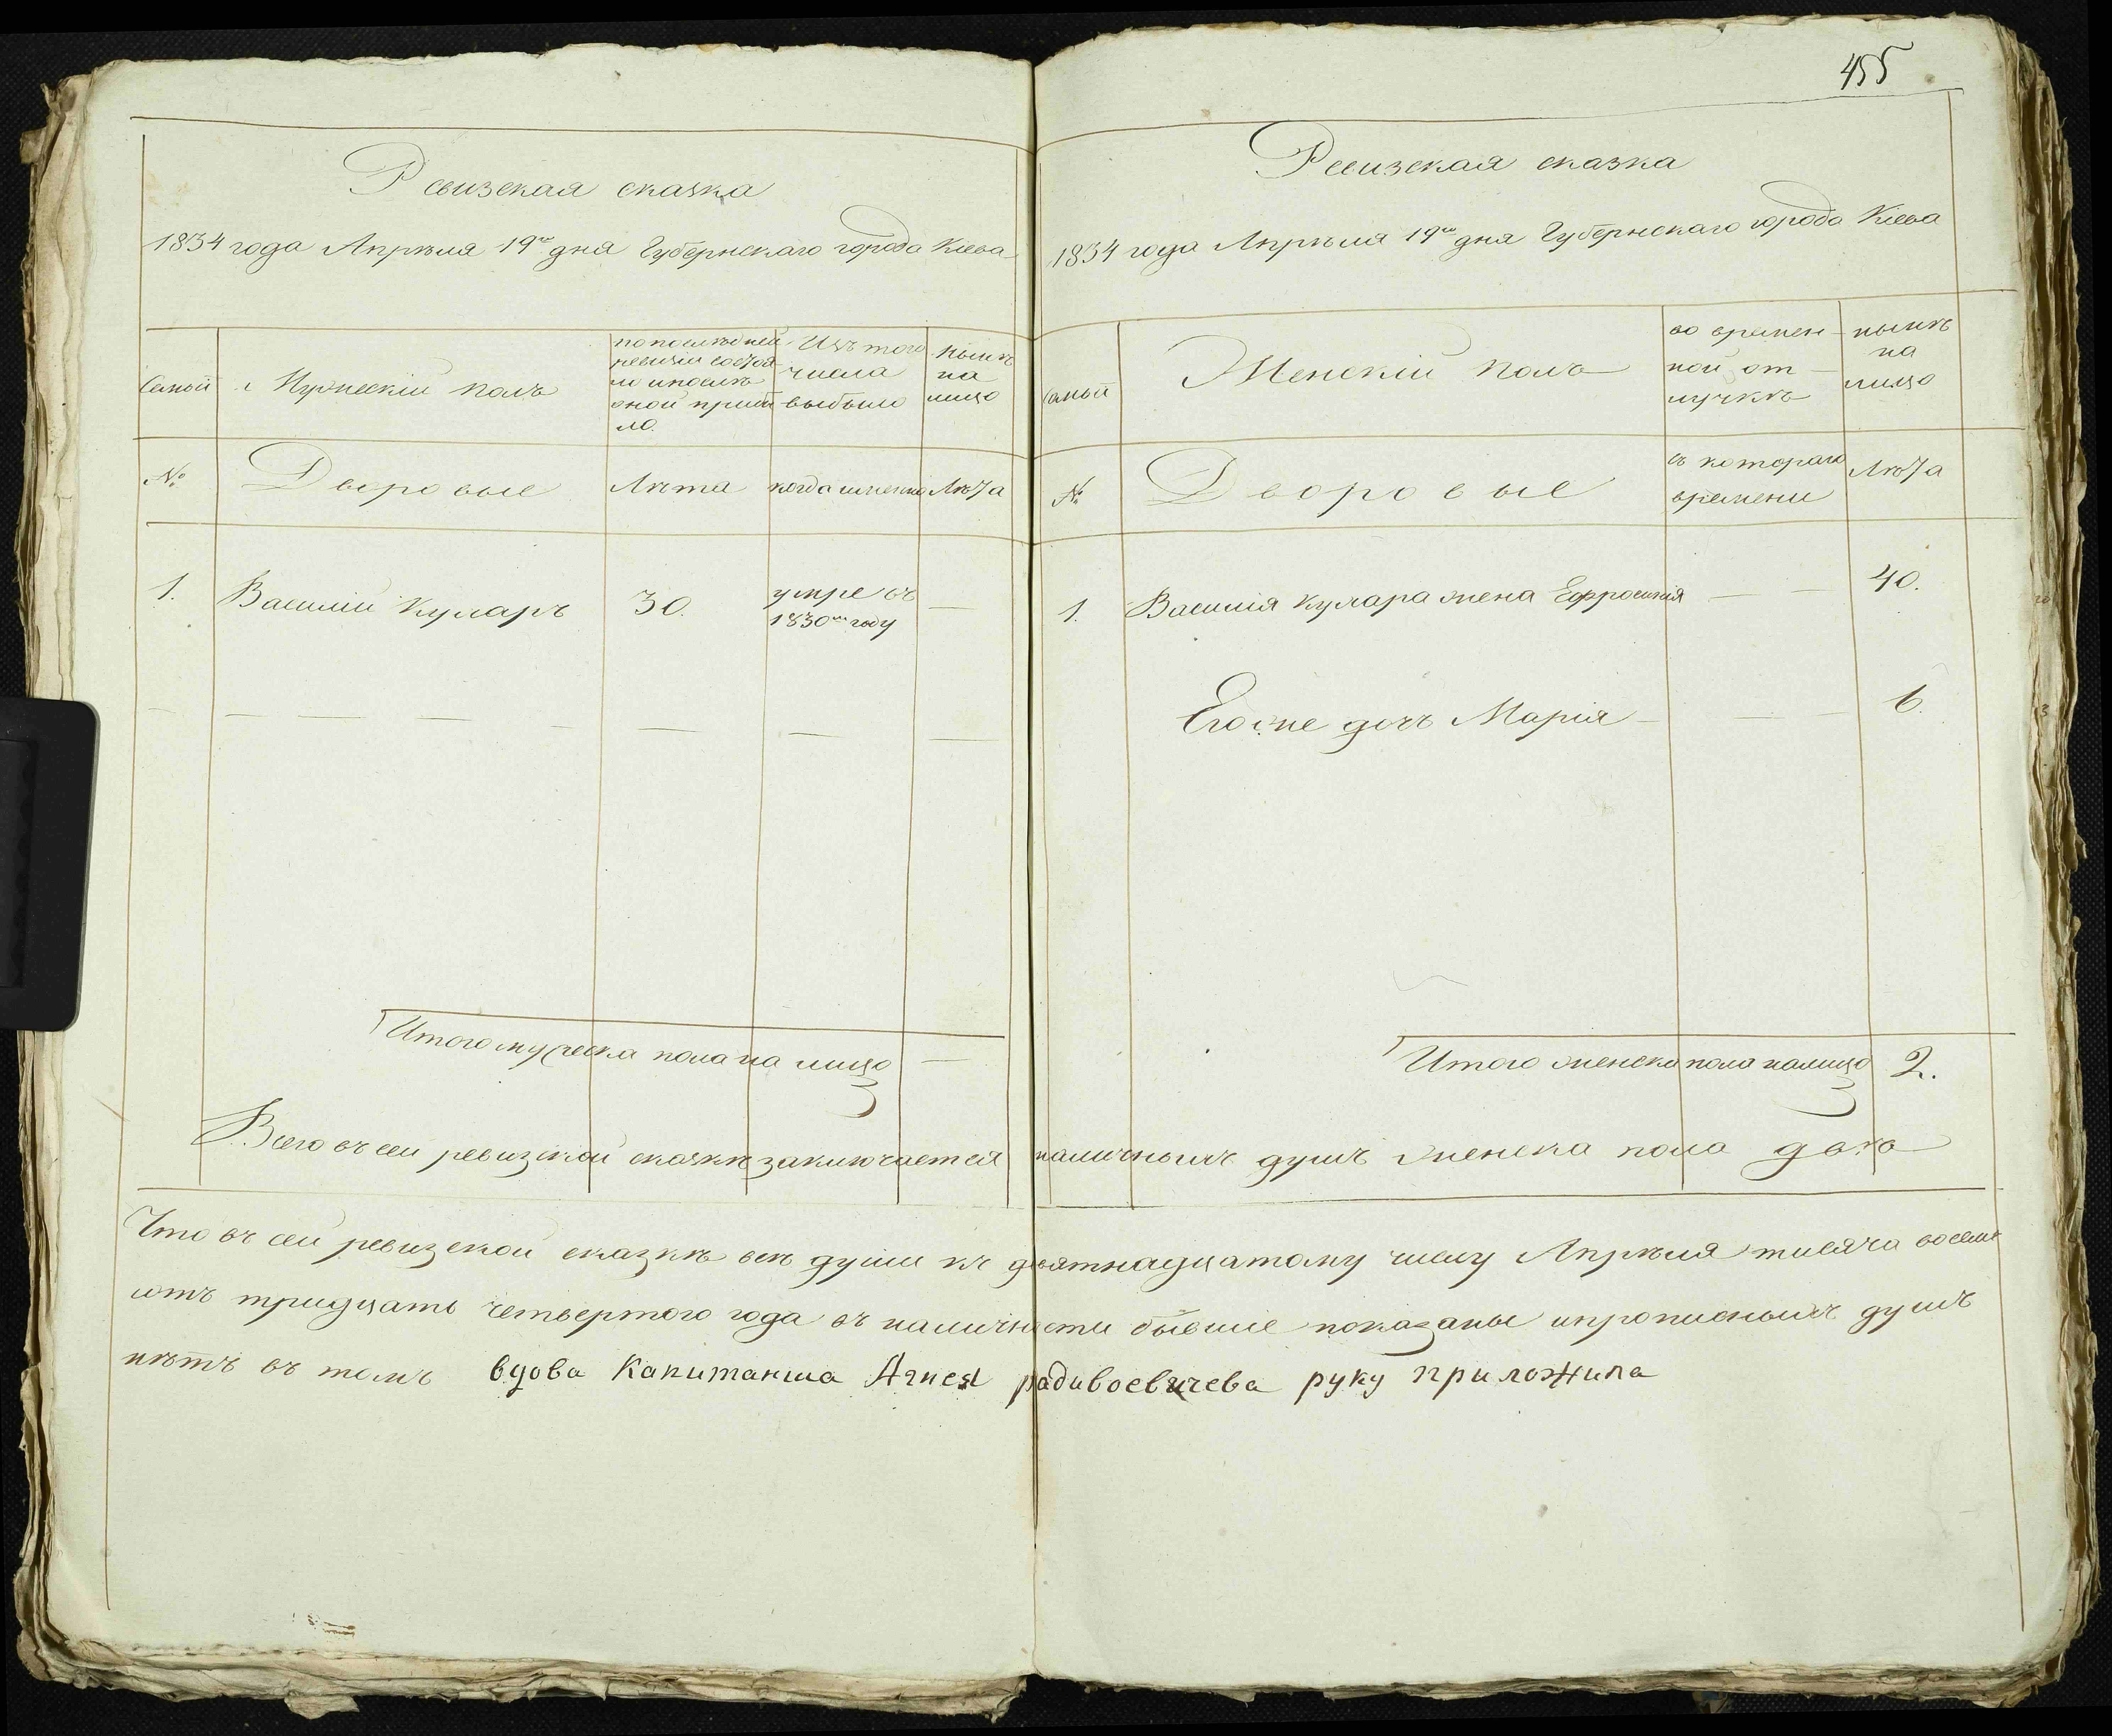 455
Ревизская сказка
1834 года Апрѣля 19го дня Губернскаго города Кіева
Семьи
Мужескій полъ
по последней
ревизіи состоя
ло и после
оной прибы
ло.
Изъ того
числа
выбыло
Нынѣ
на
лицо
№
Дворовые
Лѣта
когда именно
Лѣта
1.
Василій Куларъ
30.
умре въ
1830м году
Итого мужеска пола на лицо
Ревизская сказка
1834 года Апрѣля 19го дня Губернскаго города Кіева
Семьи
Женскій полъ
во времен
ной от
лучкѣ
нынѣ
на
лицо
№
Дворовые
съ котораго
времени
Лѣта
1.
Василія Кулара жена Ефросинія
40.
Его же дочь Марія
6.
Итого женска пола налицо 2.
Всего въ сей ревизской сказкѣ заключается наличныхъ душъ женска пола двѣ
Что въ сей ревизской сказкѣ всѣ души къ девятнадцатому числу Апрѣля тысяча восемь
сотъ тридцать четвертого года въ наличности бывшіе показаны и прописныхъ душъ
нѣтъ въ томъ вдова Капитанша Агнея радивоевичева руку приложила